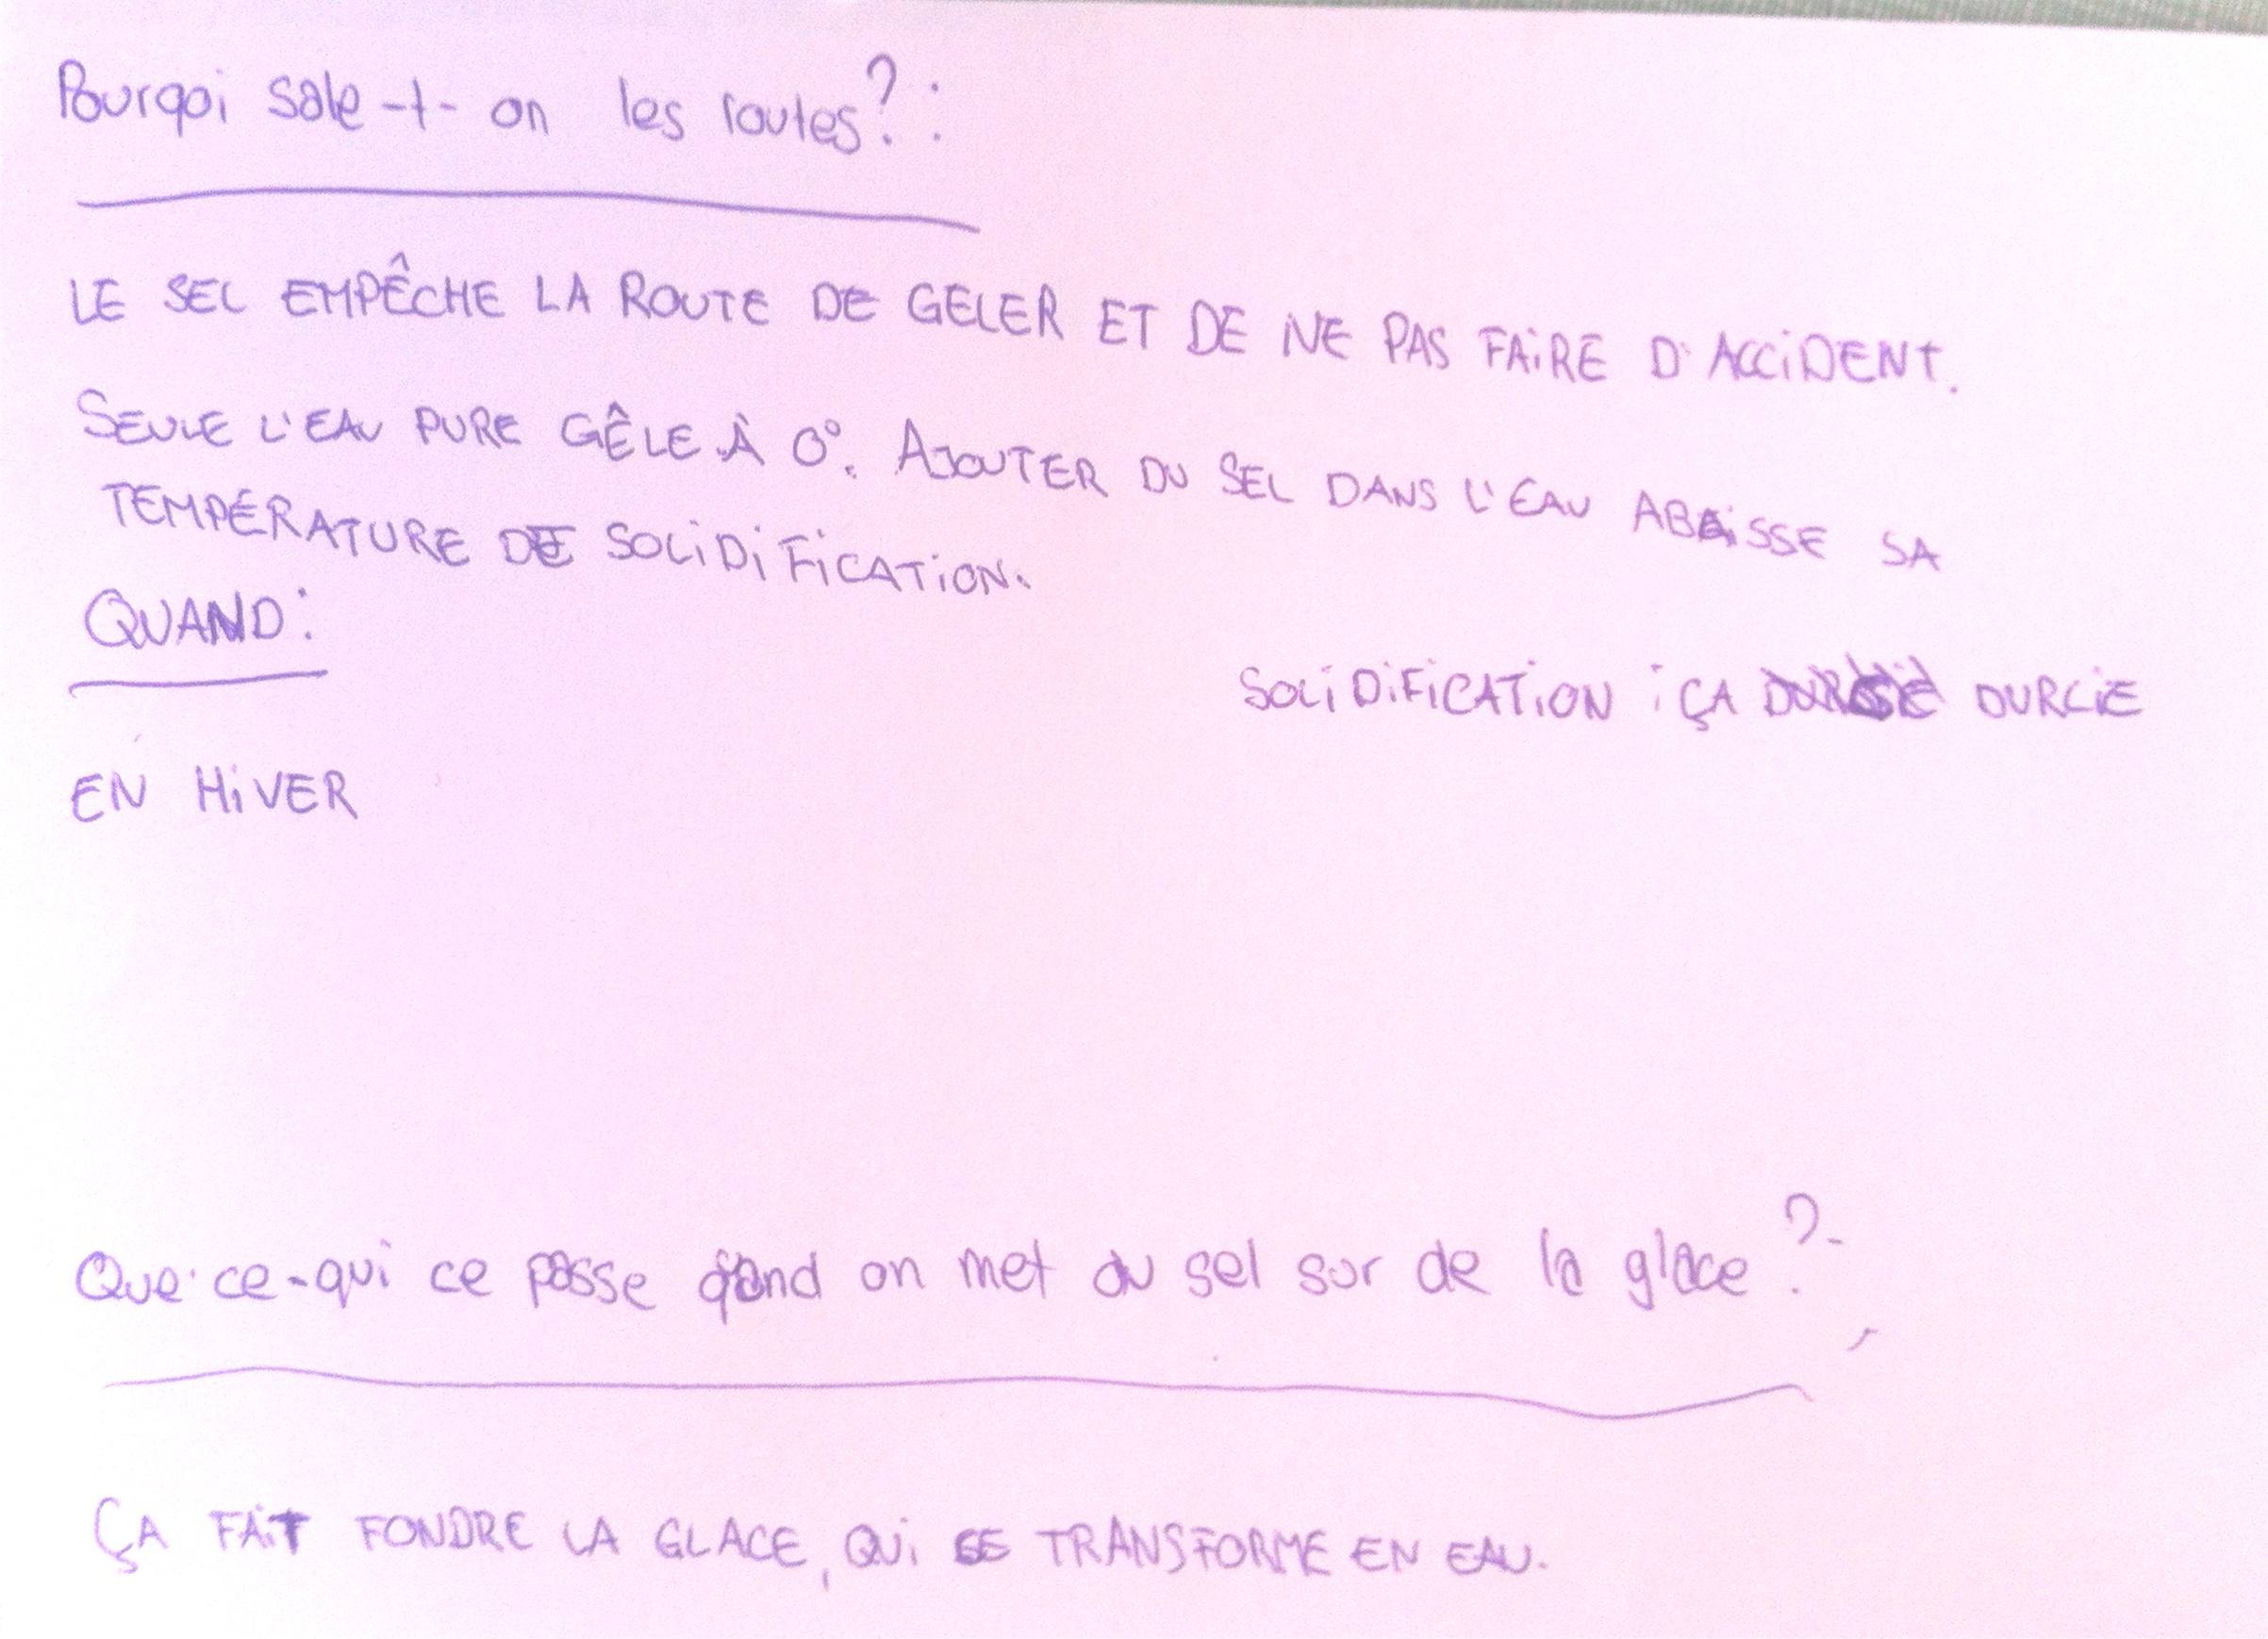 Pourqoi sale-t-on les routes? :
LE SEL EMPÊCHE LA ROUTE DE GELER ET DE NE PAS FAIRE D'ACCIDENT.
SEULE L'EAU PURE GÊLE À 0°. AJOUTER DU SEL DANS L'EAU ABAISSE SA
TEMPÉRATURE DE SOLIDIFICATION.
QUAND:
SOLIDIFICATION : ÇA DURCIE
EN HIVER
Que'ce-qui ce passe qand on met du sel sur de la glace?
ÇA FAIT FONDRE LA GLACE, QUI SE TRANSFORME EN EAU.